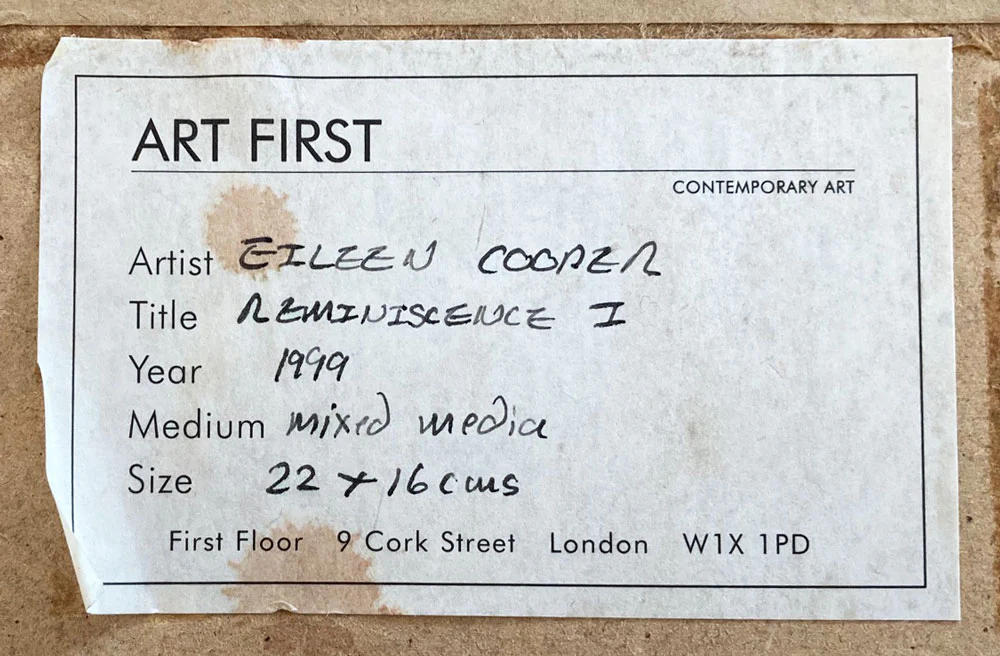 ART FIRST
CONTEMPORARY ART
Artist EILEEN COOPER
Title REMINISCENCE I
Year 1999
Medium mixed media
Size 22 x 16 cms
First Floor 9 Cork Street London W1X 1PD